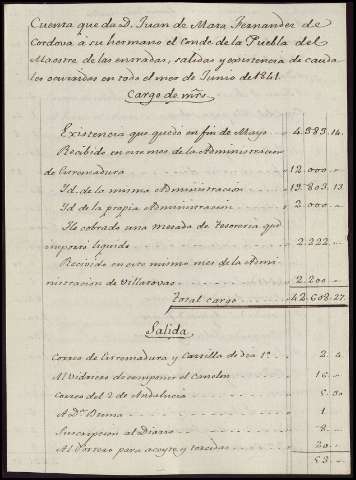 Cuenta que da D. Juan de Mata Fernandez de
Cordova á su hermano el Conde de la Puebla del
Maestre de las entradas, salidas y existencia de cauda
les ocurridos en todo el mes de Junio de 1841.
Cargo de mrs.
Existencia que quedó en fin de Mayo 4.383.14.
Recibido en este mes de la Administracion
de Estremadura 12.000
Id. de la misma Administracion 19.803.13
Id. de la propia Administracion 2.000
He cobrado una mesada de tesoreria que
importó liquido 2.222
Recivido en este mismo mes de la Admi
nistracion de Villarovas 2.200
Total cargo 42.608.27.
Salida
Correo de Estremadura y Cartilla de dia 1º 2. 4
Al Vidriero de componer el canelon 16
Correo del 2 de Andalucia 5.30
A Dn. Bruna 1
Suscripcion al Diario 8
Al Portero para aceyte y torcidas 20
53